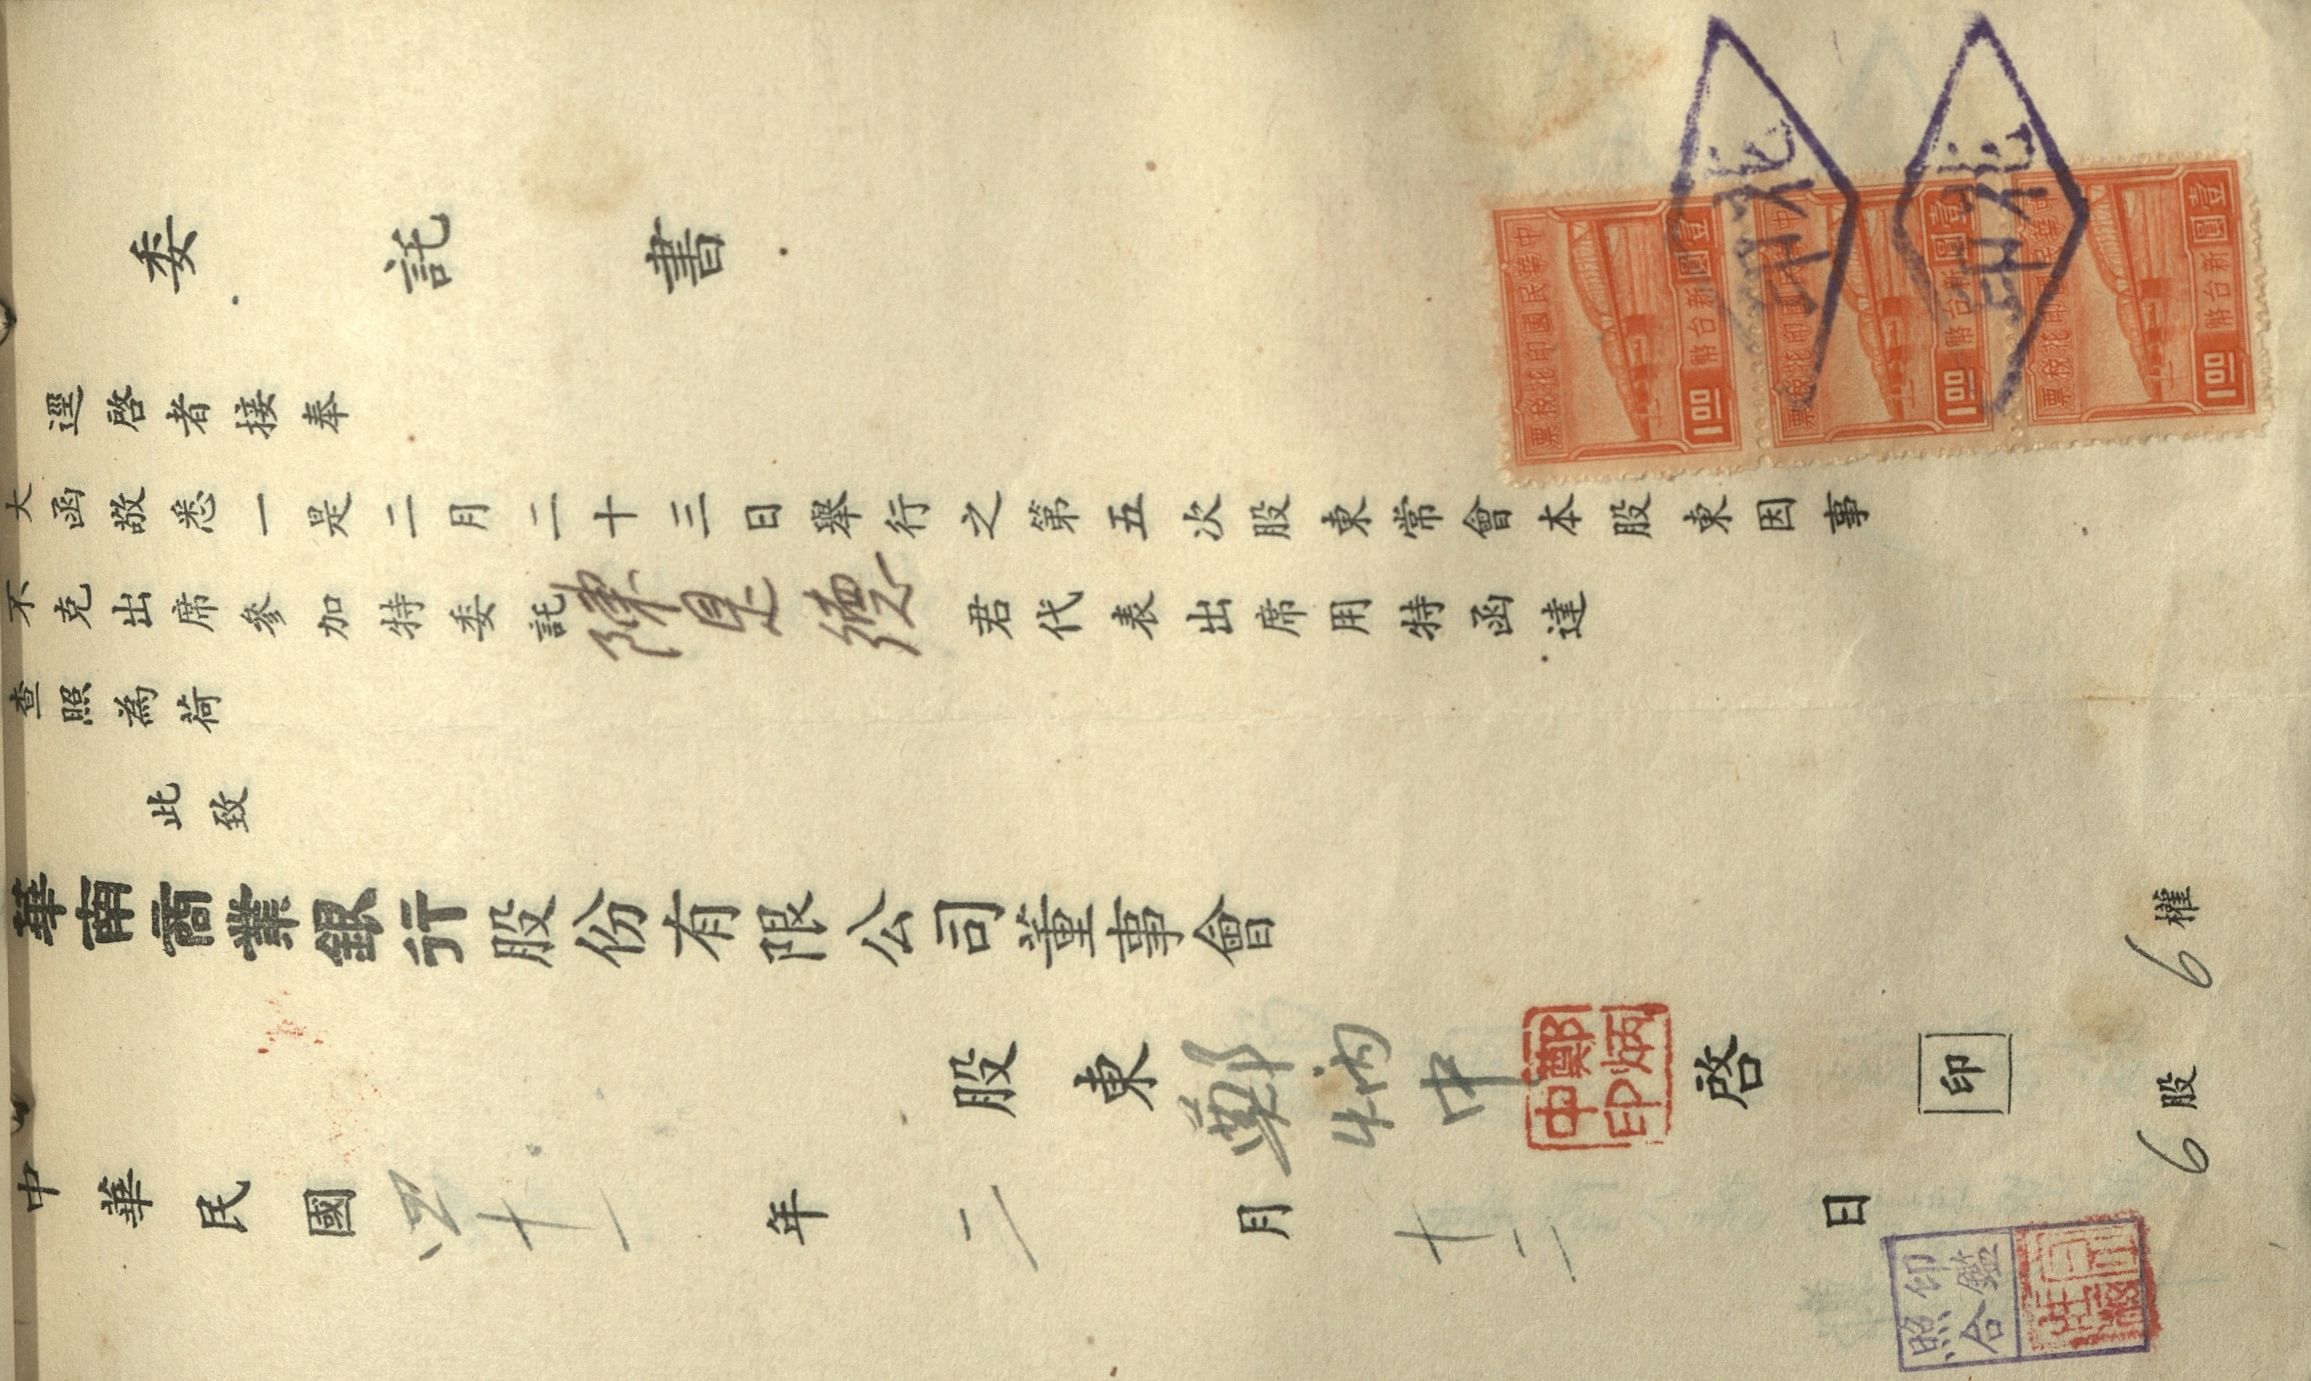 委託書
逕啓者接奉
大函敬悉一是二月二十三日舉行之第五次股東常會本股東因事
不克出席參加特委託陳是德君代表出席用特函達
查照為荷
此致
華南商業銀行股份有限公司董事會
股東鄭炳中啓 印
鄭炳中印
中華民國四十一年二月十二日
6股 6權
印鑑照合
中華民國印花稅票
壹圓 新台幣 1.00
中華民國印花稅票
壹圓 新台幣 1.00
中華民國印花稅票
壹圓 新台幣 1.00